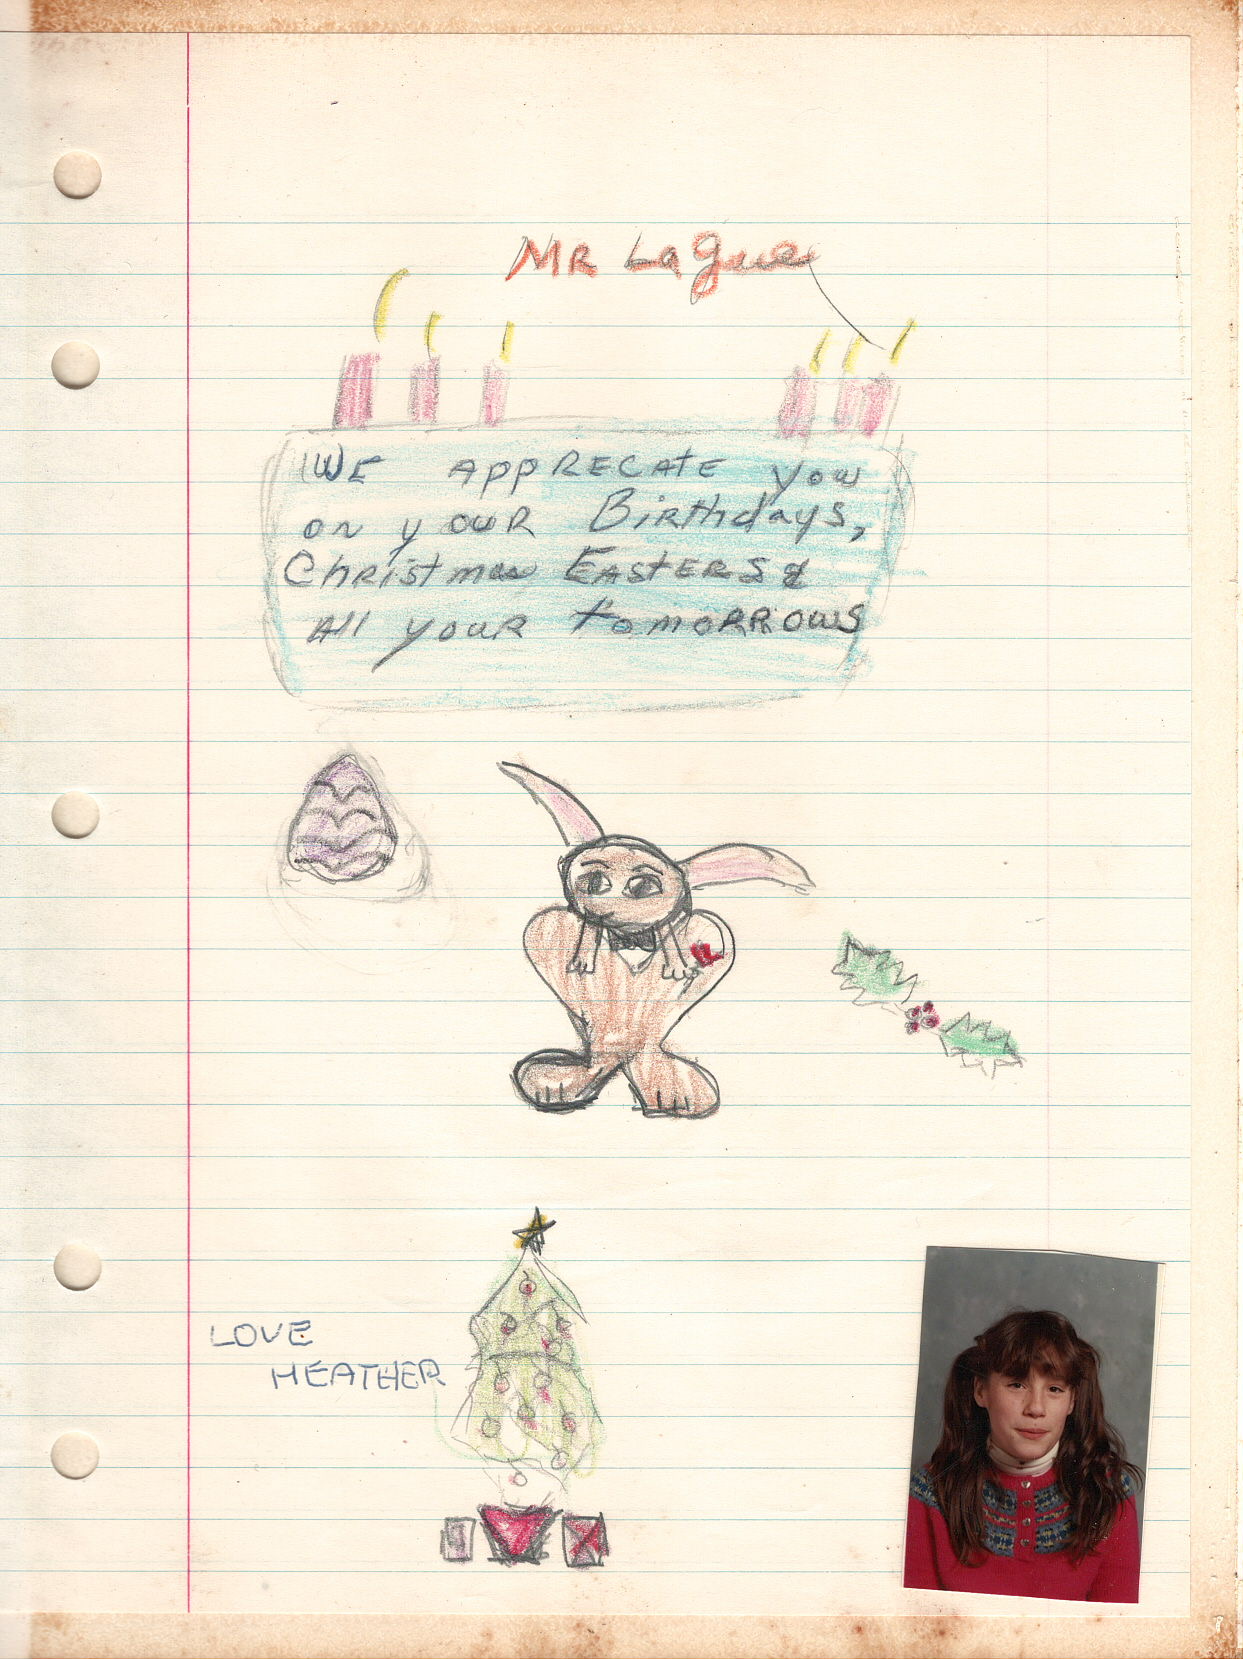 MR LaGuea
WE APPRECATE you
on your Birthdays,
Christmas EASTERS &
All your tomorrows
LOVE
HEATHER